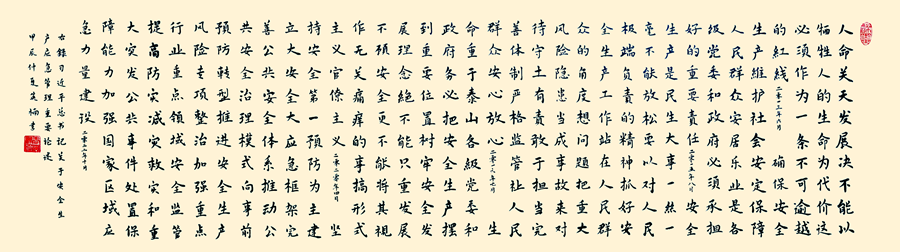 人命关天发展决不能以
牺牲人的生命为代价这
必须作为一条不可逾越
的红线 二〇一三年六月 确保安全
生产维护社会安定保障
人民群众安居乐业是各
级党委和政府必须承担
好的重要责任 二〇一五年八月
生产是民生大事一丝一
毫不能放松要以对人民
极端负责的精神抓好安
全生产工作站在人民群
众的角度想问题把重大
风险隐患当成事故来对
待守土有责敢于担当完
善体制严格监管让人民
群众安心放心 二〇一六年七月 生
命重于泰山各级党委和
政府务必把安全生产摆
到重要位置树牢安全发
展理念絕不能只重发展
不顾安全更不能将其视
作无关痛痒的事搞形式
主义官僚主义 二〇二〇年四月 坚
持安全第一预防为主建
立大安全大应急框架完
善公共安全体系推动公
共安全治理模式向事前
预防转型推进安全生产
风险专项整治加强重点
行业重点领域安全监管
提高防灾减灾救灾和重
大突发公共事件处置保
障能力加强国家区域应
急力量建设 二〇二二年十月
右録习近平总书记关于安全生
产应急管理重要论述
甲辰仲夏